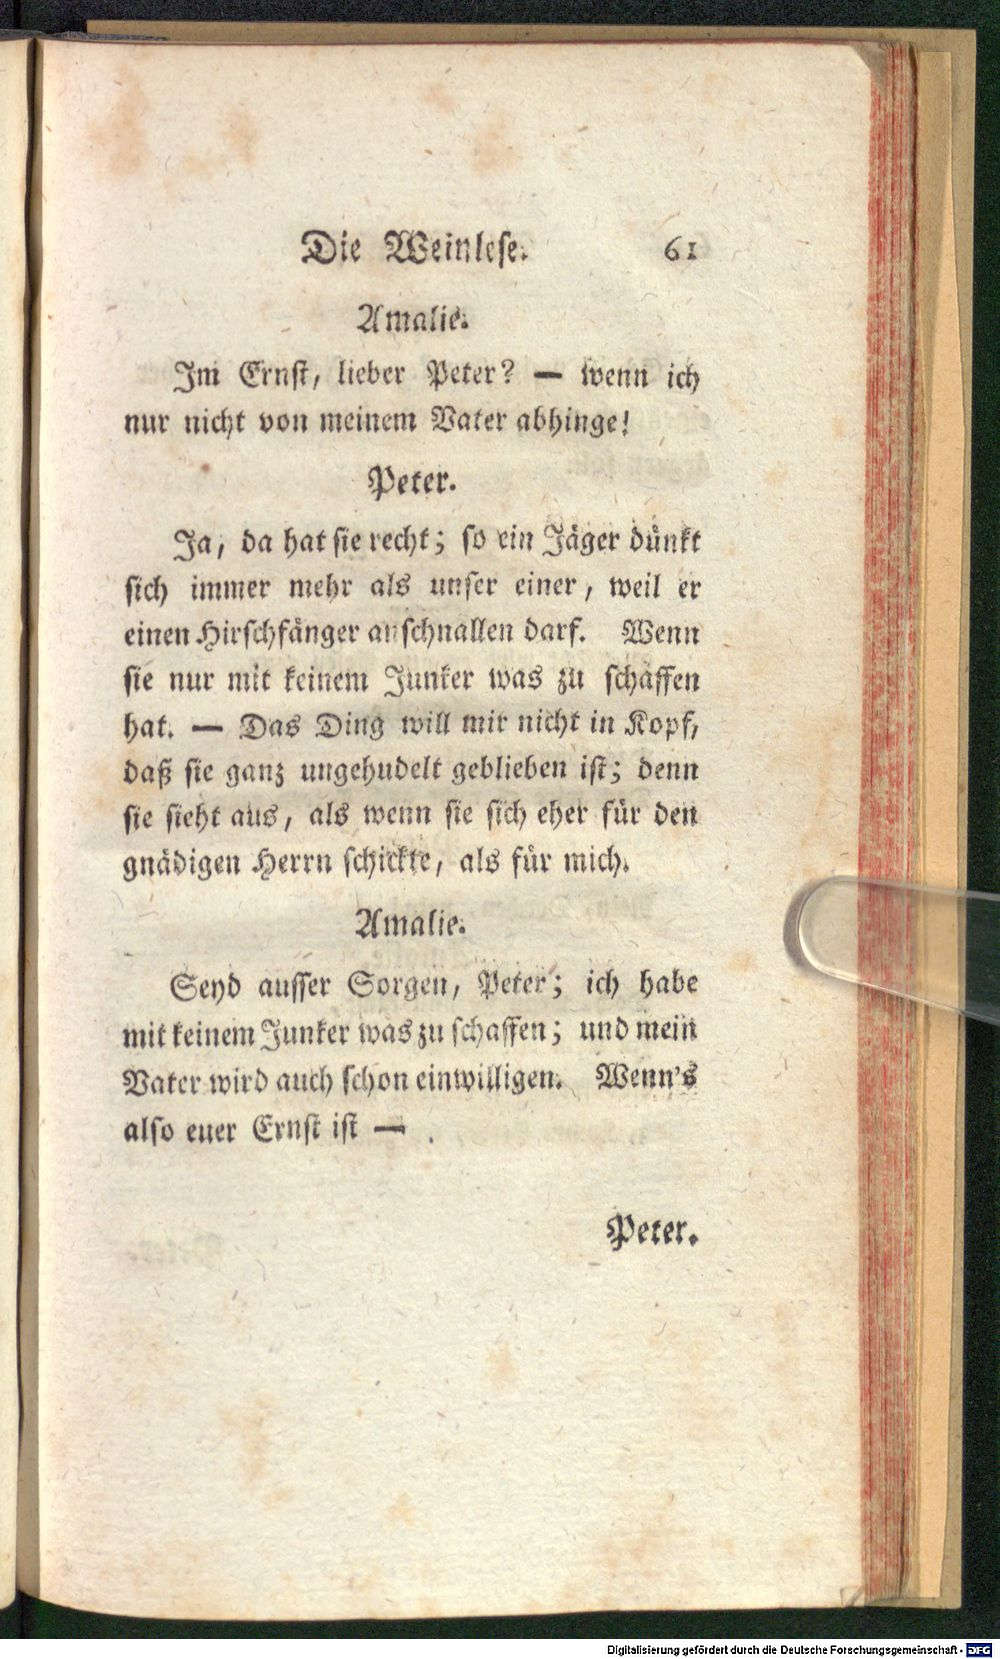 Die Weinlese. 61
Amalie.
Im Ernst, lieber Peter? — wenn ich
nur nicht von meinem Vater abhinge!
Peter.
Ja, da hat sie recht; so ein Jäger dünkt
sich immer mehr als unser einer, weil er
einen Hirschfänger anschnallen darf. Wenn
sie nur mit keinem Junker was zu schaffen
hat. — Das Ding will mir nicht in Kopf,
daß sie ganz ungehudelt geblieben ist; denn
sie sieht aus, als wenn sie sich eher für den
gnädigen Herrn schickte, als für mich.
Amalie.
Seyd ausser Sorgen, Peter; ich habe
mit keinem Junker was zu schaffen; und mein
Vater wird auch schon einwilligen. Wenn's
also euer Ernst ist —
Peter.
Digitalisierung gefördert durch die Deutsche Forschungsgemeinschaft - DFG